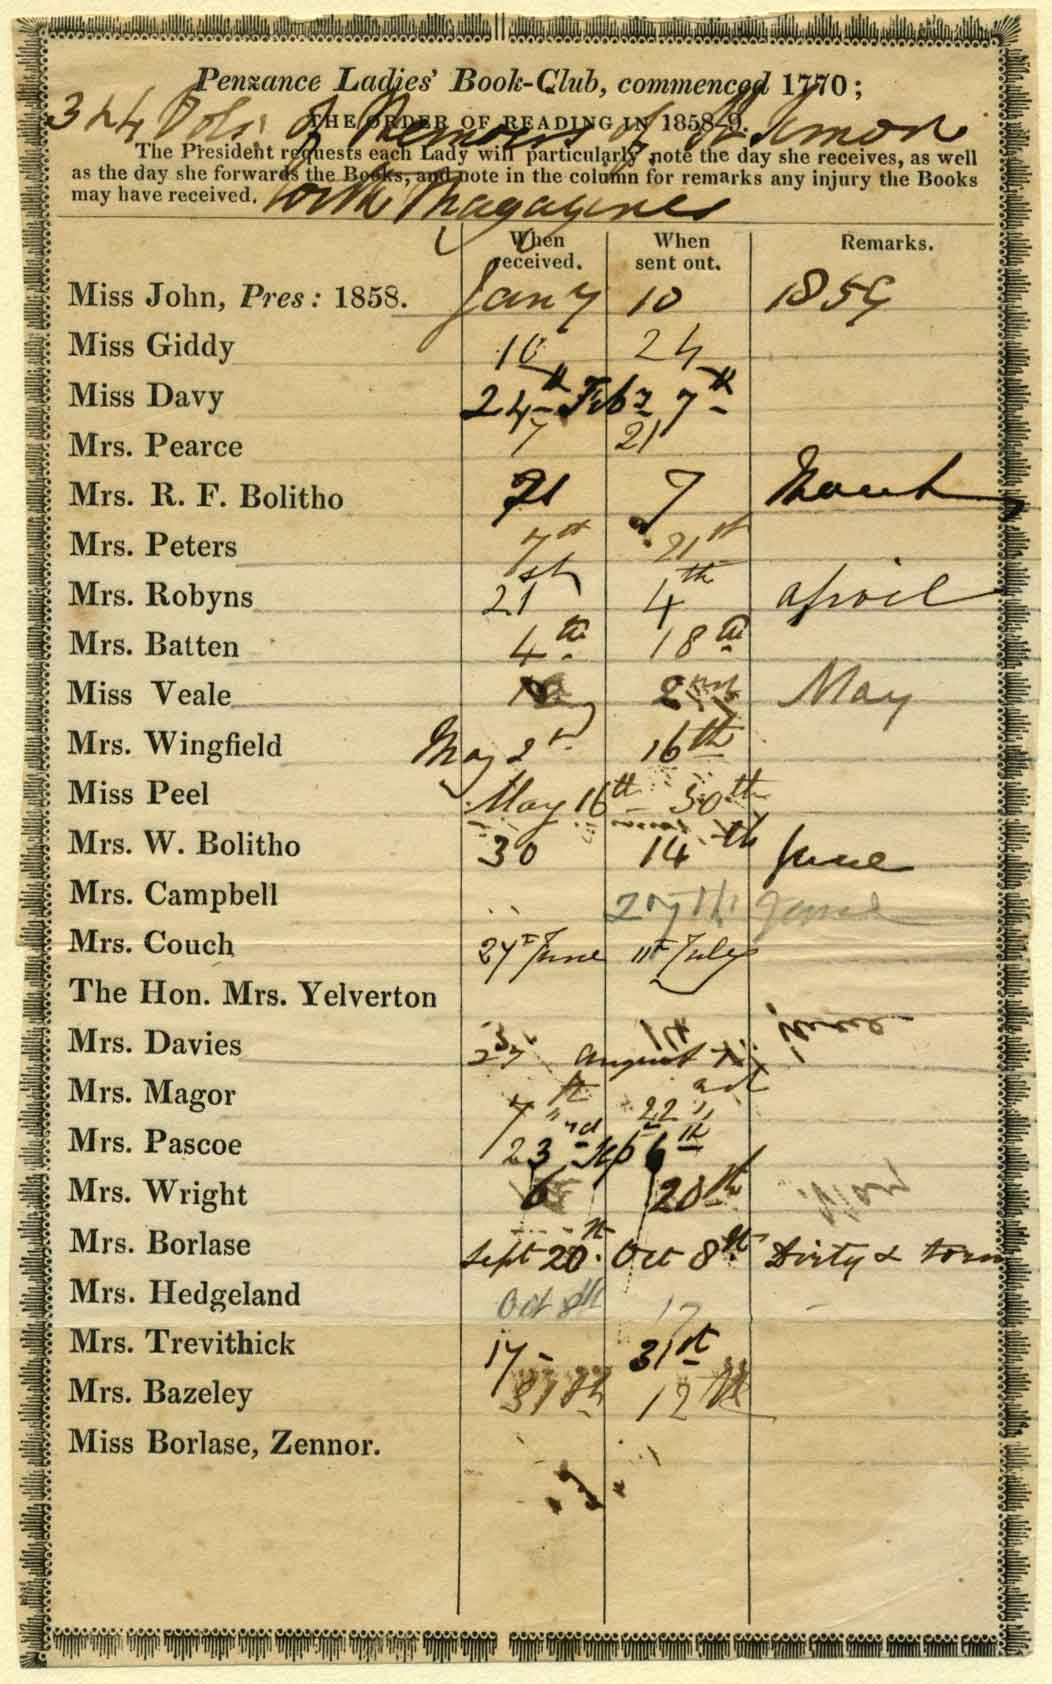 Penzance Ladies' Book-Club, commenced 1770;
3 & 4 Vols: of Memoirs of St Simon
THE ORDER OF READING IN 1858-9.
The President requests each Lady will particularly note the day she receives, as well
as the day she forwards the Books, and note in the column for remarks any injury the Books
may have received.
with Magazines
When received. When sent out. Remarks.
Miss John, Pres: 1858. Jany 10 1859
Miss Giddy 10 24
Miss Davy 24th Feby 7th
Mrs. Pearce 7 21
Mrs. R. F. Bolitho 21 7 March
Mrs. Peters 7th 21st
Mrs. Robyns 21st 4th April
Mrs. Batten 4th 18th
Miss Veale 2nd May
Mrs. Wingfield May 2nd 16th
Miss Peel May 16th 30th
Mrs. W. Bolitho 30 14th June
Mrs. Campbell 27th June
Mrs. Couch 27th June 11th July
The Hon. Mrs. Yelverton
Mrs. Davies August
Mrs. Magor 7th 22nd
Mrs. Pascoe 23rd Sep 6th
Mrs. Wright 6 20th
Mrs. Borlase Sept 20th. Oct 8th Dirty & torn
Mrs. Hedgeland Oct 8th 17
Mrs. Trevithick 17 31st
Mrs. Bazeley 31st 12th
Miss Borlase, Zennor.